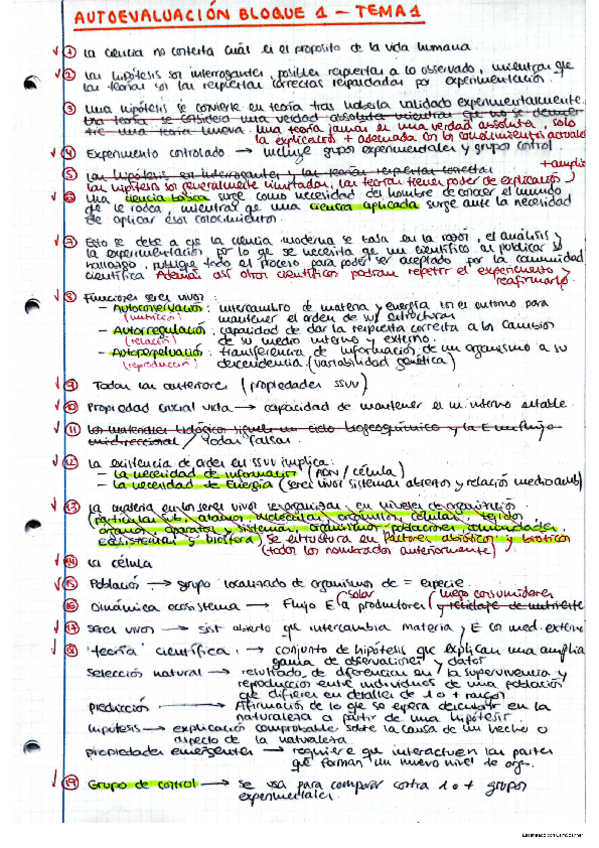 AUTOEVALUACIÓN BLOQUE 1 – TEMA 1
① La ciencia no contesta cuál es el propósito de la vida humana
② Las hipótesis son interrogantes, posibles respuestas a lo observado, mientras que
las teorías son las respuestas correctas respaldadas por experimentación
③ Una hipótesis se convierte en teoría tras haberla validado experimentalmente.
Una teoría se considera una verdad absoluta mientras que no se
una teoría nueva. Una teoría jamás es una verdad absoluta, solo
la explicación + adecuada con los conocimientos actuales
④ Experimento controlado → incluye grupos experimentales y grupos control.
⑤ Las hipótesis son interrogantes y las teorías respuestas correctas + amplia
las hipótesis son generalmente limitadas, las teorías tienen poder de explicación
⑥ Una ciencia básica surge como necesidad del hombre de conocer el mundo
que le rodea, mientras que una ciencia aplicada surge ante la necesidad
de aplicar esos conocimientos.
⑦ Esto se debe a que la ciencia moderna se basa en la razón, el análisis y
la experimentación, por lo que se necesita que un científico al publicar su
hallazgo, publique todo el proceso para poder ser aceptado por la comunidad
científica. Además así otros científicos podrán repetir el experimento y
reafirmarlo.
⑧ Funciones seres vivos:
– Autoconservación: intercambio de materia y energía con el entorno para
(nutrición) mantener el orden de sus estructuras
– Autorregulación: capacidad de dar la respuesta correcta a los cambios
(relación) de su medio interno y externo.
– Autoperpetuación: transferencia de información de un organismo a su
(reproducción) descendencia. (variabilidad genética)
⑨ Todas las anteriores (propiedades ssvv)
⑩ Propiedad crucial vida → capacidad de mantener el m. interno estable.
⑪ Los materiales biológicos siguen un ciclo biogeoquímico y la E un flujo
unidireccional / Todas falsas.
⑫ La existencia de orden en ssvv implica:
– La necesidad de información (ADN / célula)
– La necesidad de Energía (seres vivos sistemas abiertos y relación medio amb)
⑬ La materia en los seres vivos se organiza en niveles de organización
(partículas sub, átomos, moléculas, orgánulos, células, tejidos,
órganos, aparatos y sistemas, organismos, poblaciones, comunidades,
ecosistemas y biosfera) Se estructura en factores abióticos y bióticos
(todos los nombrados anteriormente)
⑭ La célula
⑮ Población → grupo localizado de organismos de = especie.
solar luego consumidores
⑯ Dinámica ecosistema → Flujo E a productores y reciclaje de nutrientes
⑰ Seres vivos → sist. abierto que intercambia materia y E con med. externo
⑱ 'teoría' científica: → conjunto de hipótesis que explican una amplia
gama de observaciones y datos
Selección natural → resultado de diferencias en la supervivencia y
reproducción entre individuos de una población
que difieren en detalles de 1 o + rasgos
Predicción → Afirmación de lo que se espera descubrir en la
naturaleza a partir de una hipótesis.
Hipótesis → explicación comprobable sobre la causa de un hecho o
aspecto de la naturaleza.
propiedades emergentes → requiere que interactúen las partes
que forman un nuevo nivel de org.
⑲ Grupo de control → se usa para comparar contra 1 o + grupos
experimentales.